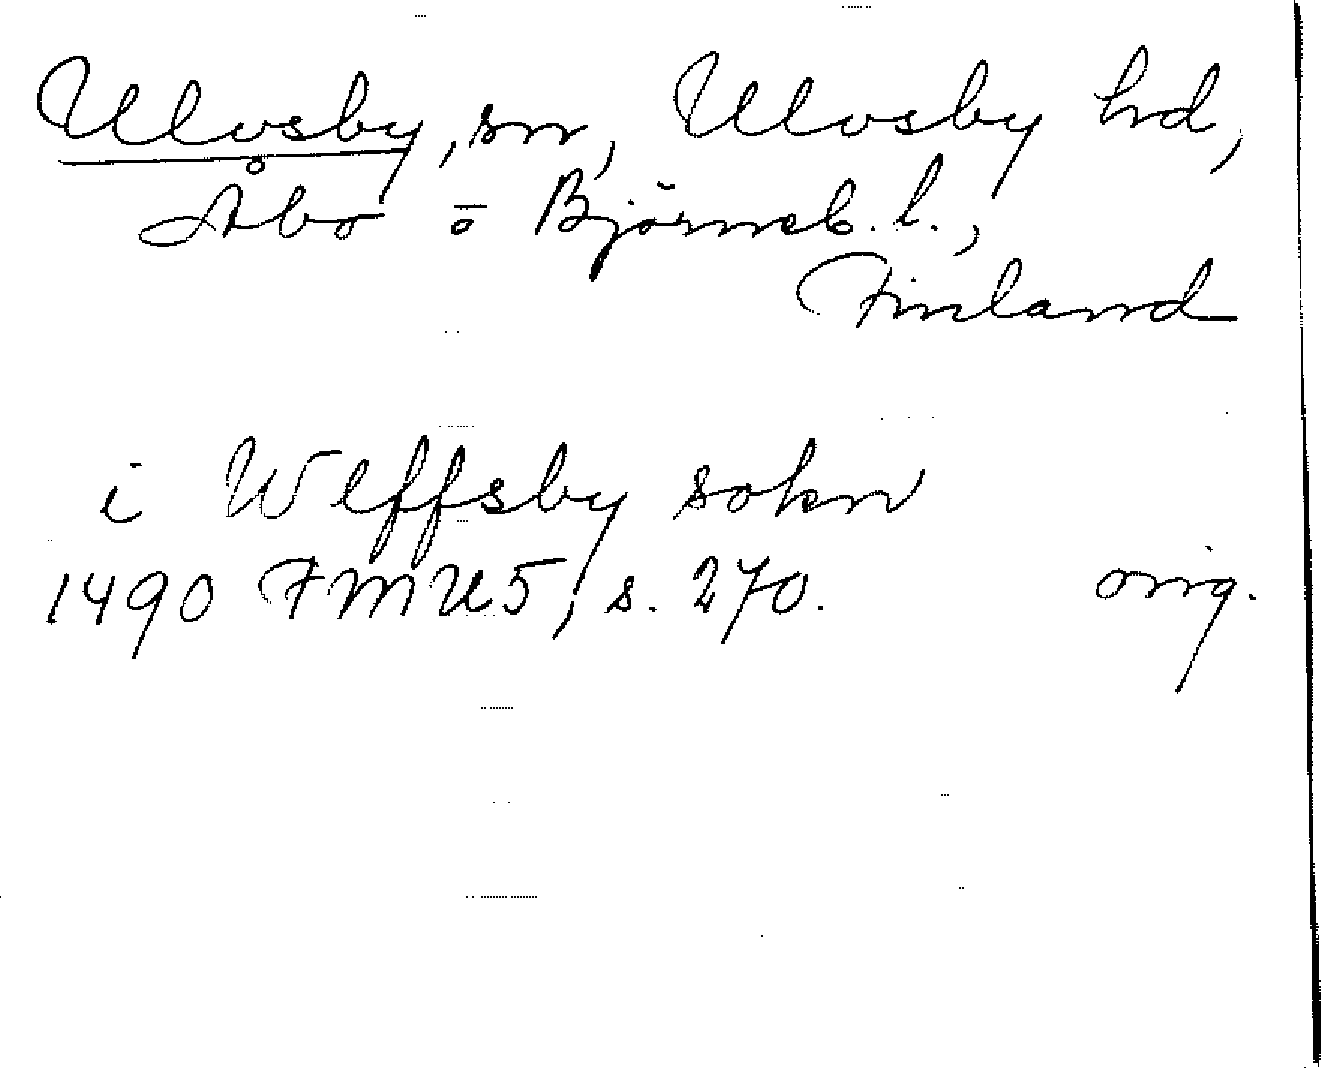 Ulvsby, sn, Ulvsby hd,
Åbo o Björneb. l.,
Finland
i Wlffsby sokn
1490 FMU5, s. 270. orig.